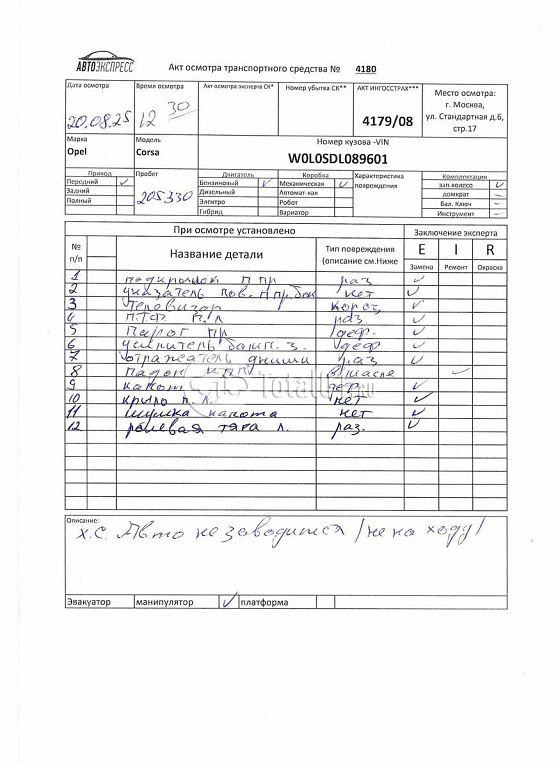 АВТОЭКСПРЕСС
Акт осмотра транспортного средства № 4180
Дата осмотра Время осмотра Акт осмотра эксперта СК* Номер убытка СК** АКТ ИНГОССТРАХ*** Место осмотра:
20.08.25 12 30 4179/08 г. Москва,
ул. Стандартная д.6,
стр.17
Марка Модель Номер кузова -VIN
Opel Corsa W0L0SDL089601
Привод Пробег Двигатель Коробка Характеристика Комплектация
Передний ✓ 205330 Бензиновый ✓ Механическая ✓ повреждения зап.колесо ✓
Задний Дизельный Автомат-кая домкрат –
Полный Электро Робот Бал. Ключ –
Гибрид Вариатор Инструмент –
При осмотре установлено Заключение эксперта
№ Название детали Тип повреждения E I R
п/п (описание см.Ниже Замена Ремонт Окраска
1 подкрылок П пр раз ✓
2 указатель пов. П пр. бок нет ✓
3 Телевизор короз ✓
4 ПТФ П.Л раз ✓
5 Парог пр деф. ✓
6 усилитель бамп. з. деф ✓
7 отражатель днища раз ✓
8 падон КПП в масле ✓
9 капот деф. ✓
10 крыло п. л. нет ✓
11 шумка капота нет ✓
12 рулевая тяга л. раз. ✓
TotalUp.ru
Описание:
х.с. Авто не заводится /не на ходу/
Эвакуатор манипулятор ✓ платформа